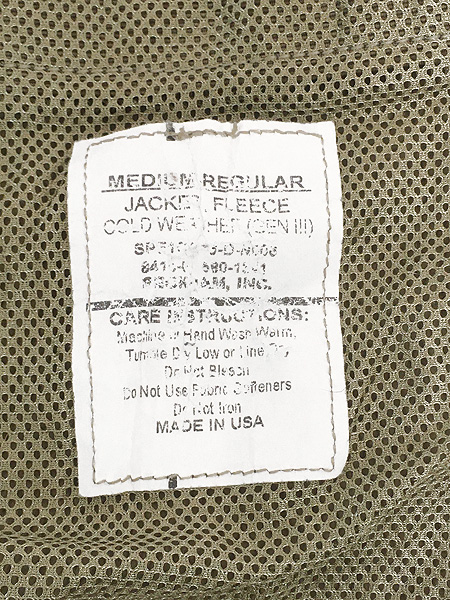 MEDIUM REGULAR
JACKET, FLEECE
COLD WEATHER (GEN III)
INC.
CARE INSTRUCTIONS:
Machine or Hand Wash Warm,
Tumble Dry Low or Line Dry,
Do Not Bleach
Do Not Use Fabric Softeners
Do Not Iron
MADE IN USA